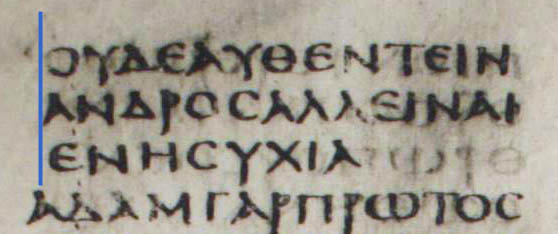 ΟΥΔΕΑΥΘΕΝΤΕΙΝ
ΑΝΔΡΟϹΑΛΛΕΙΝΑΙ
ΕΝΗϹΥΧΙΑ
ΑΔΑΜΓΑΡΠΡΩΤΟϹ